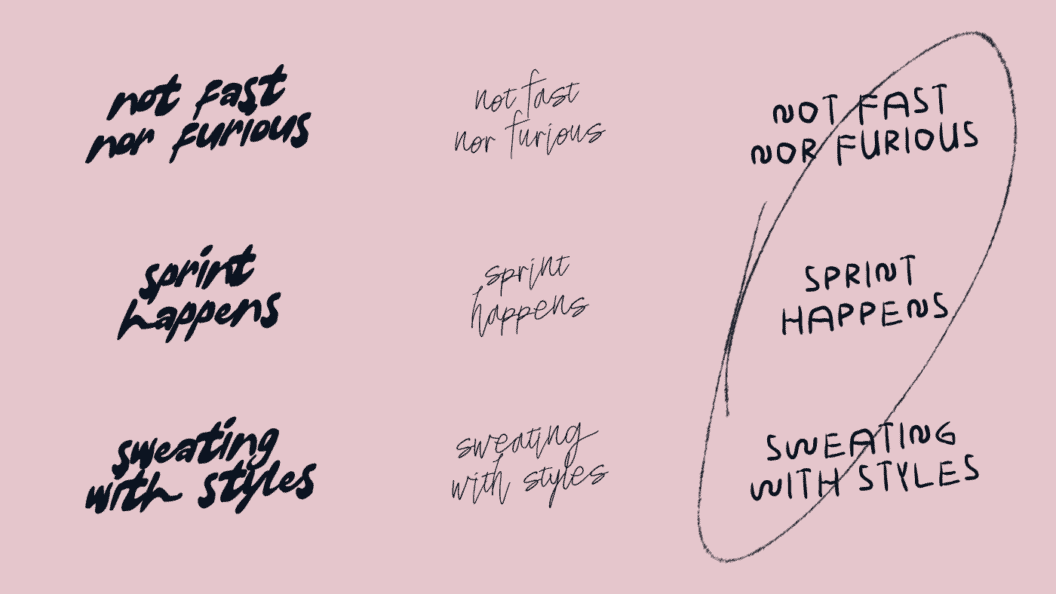 not fast
nor furious
not fast
nor furious
NOT FAST
NOR FURIOUS
sprint
happens
sprint
happens
SPRINT
HAPPENS
sweating
with styles
sweating
with styles
SWEATING
WITH STYLES